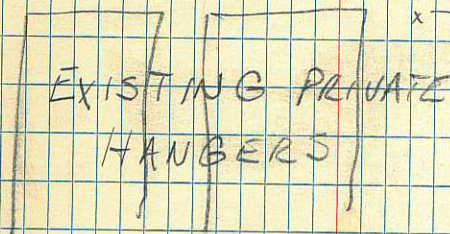 EXISTING PRIVATE
HANGERS